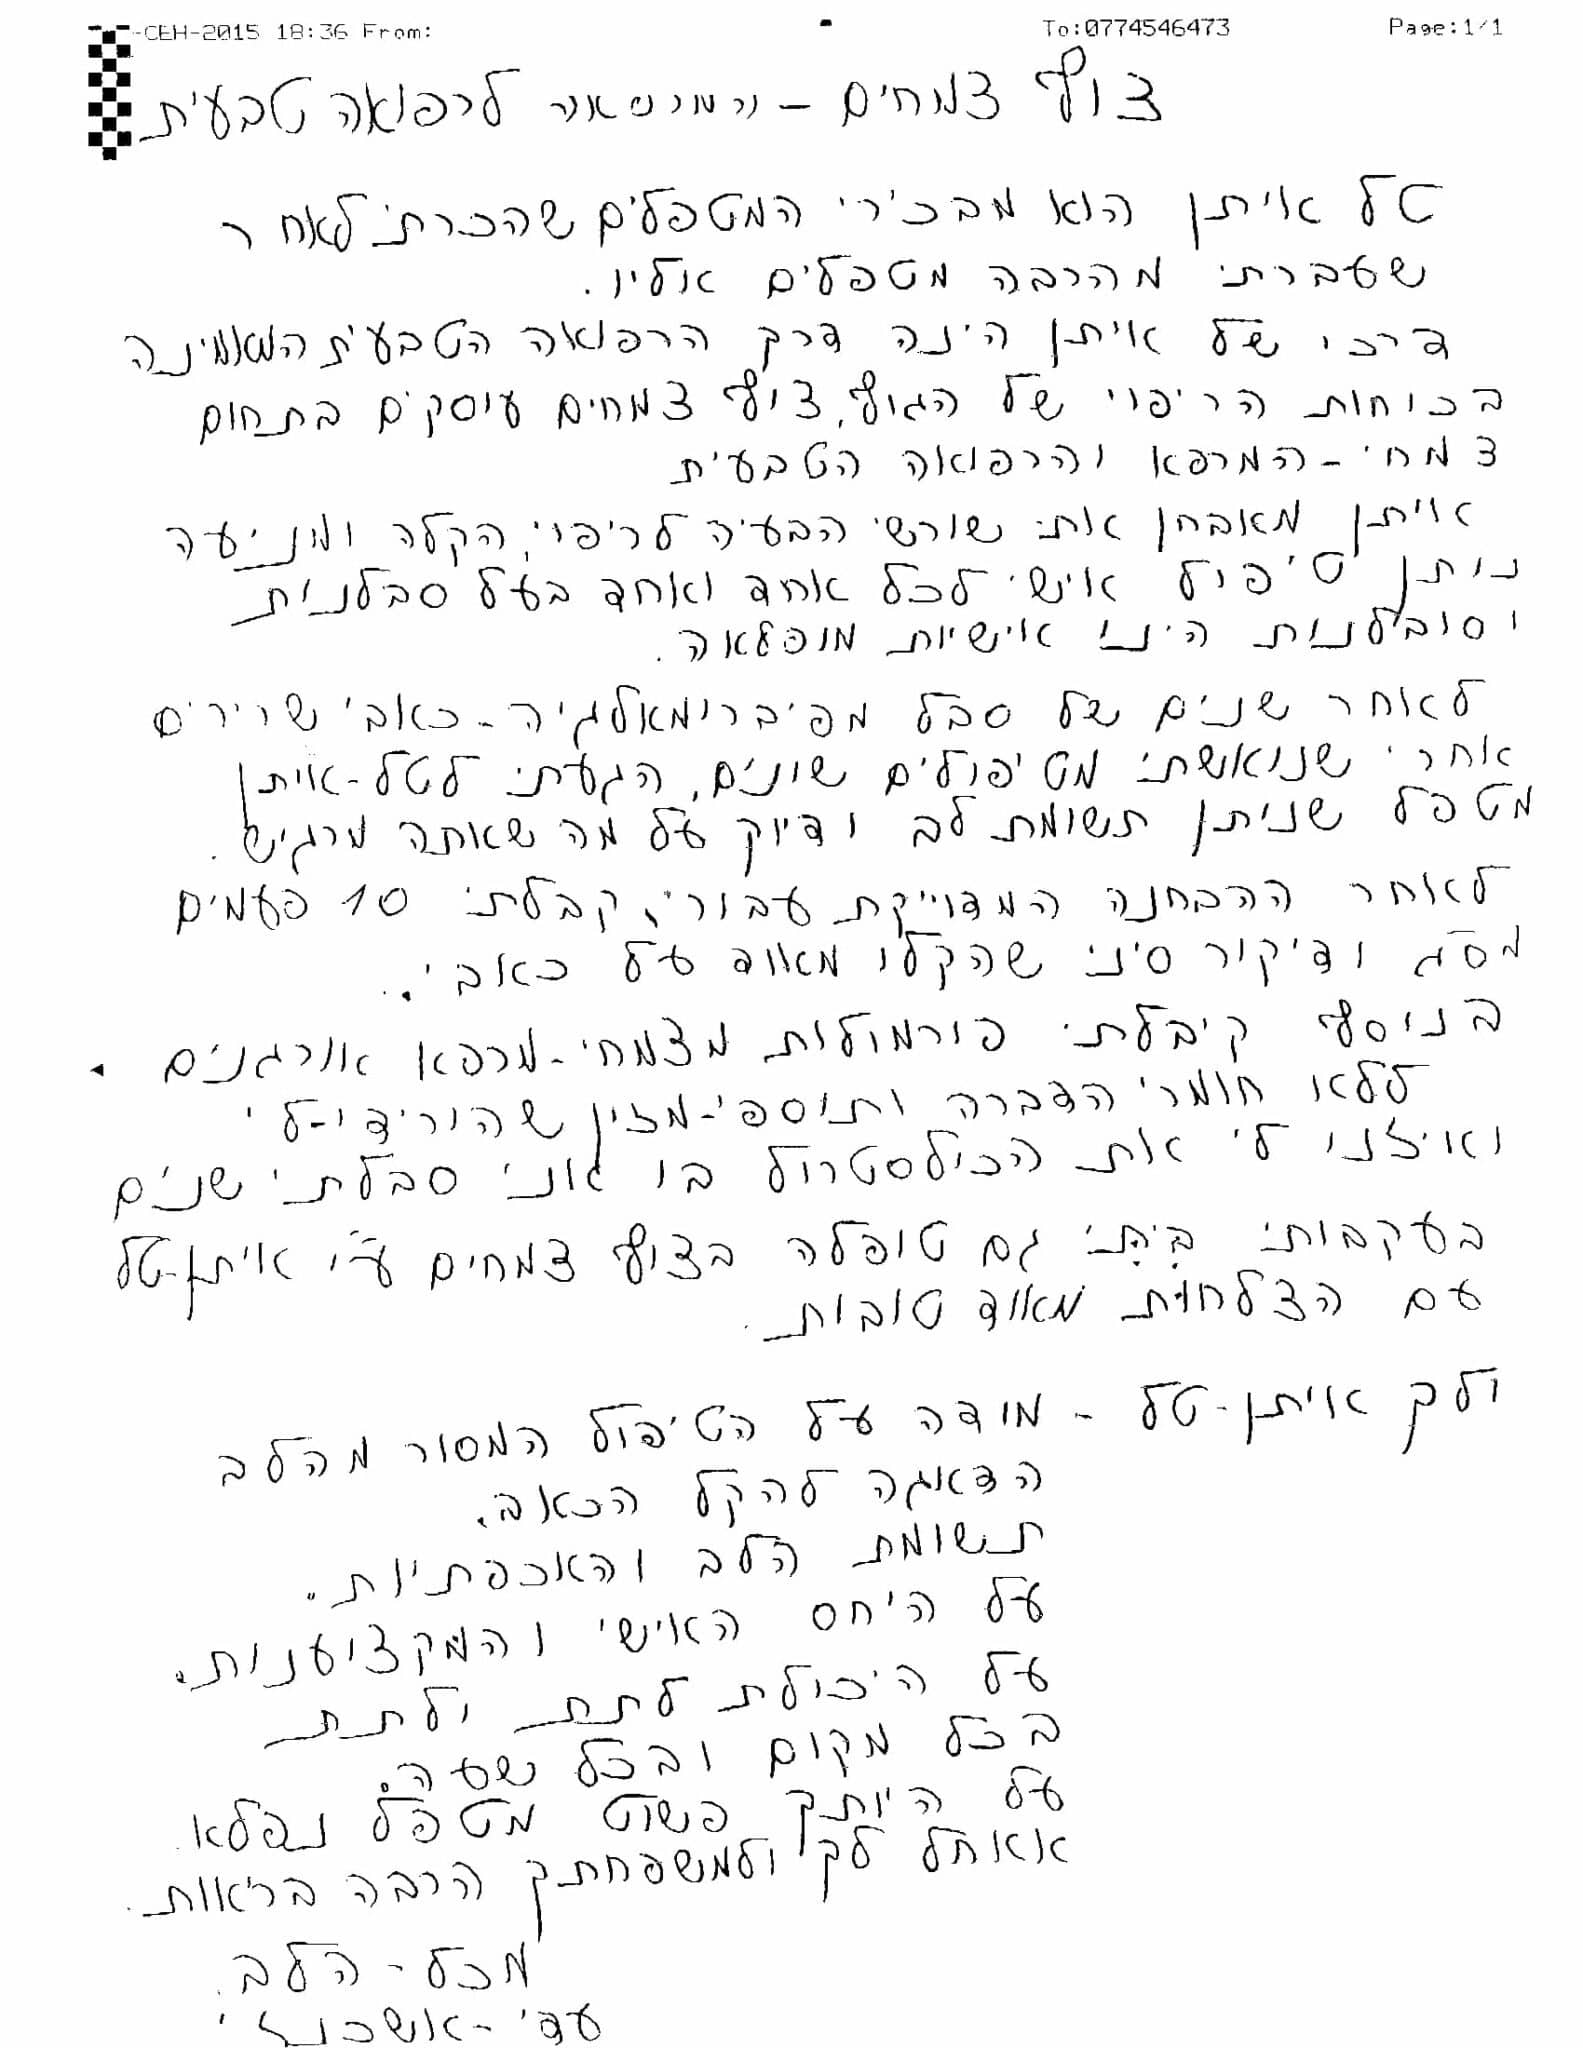 -CEH-2015 18:36 From: To:0774546473 Page:1/1
צוף צמחים - לרפואה טבעית
טל איתן הוא מבכירי המטפלים שהכרתי לאחר
שעברתי מהרבה מטפלים אליו.
דרכו של איתן הינה דרך הרפואה הטבעית המאמינה
בכוחות הריפוי של הגוף, צוף צמחים עוסקים בתחום
צמחי-המרפא והרפואה הטבעית
איתן מאבחן את שורשי הבעיה לריפוי, הקלה ומניעה
נותן טיפול אישי לכל אחד ואחד בעל סבלנות
וסובלנות הינו אישיות מופלאה.
לאחר שנים של סבל מפיברומיאלגיה-כאבי שרירים
אחרי שנואשתי מטיפולים שונים, הגעתי לטל-איתן
מטפל שניתן תשומת לב ודיוק על מה שאתה מרגיש.
לאחר ההבחנה המדוייקת עבורי, קבלתי 10 פעמים
מסג ודיקור סיני שהקלו מאוד על כאבי.
בנוסף קיבלתי פורמולות מצמחי-מרפא אורגנים.
ללא חומרי הדברה ותוספי-מזון שהורידו-לי
ואיזנו לי את הכולסטרול בו אני סבלתי שנים
בעקבותי ביתי גם טופלה בצוף צמחים ע"י איתן-טל
עם הצלחות מאוד טובות.
ולך איתן-טל - מודה על הטיפול המסור מהלב
הדאגה להקל הכאב.
תשומת הלב והאכפתיות.
על היחס האישי והמקצוענות.
על היכולת לתת ולתת
בכל מקום ובכל שעה.
על היותך פשוט מטפל נפלא.
אאחל לך ולמשפחתך הרבה בריאות.
מכל-הלב.
עדי-אשכנזי